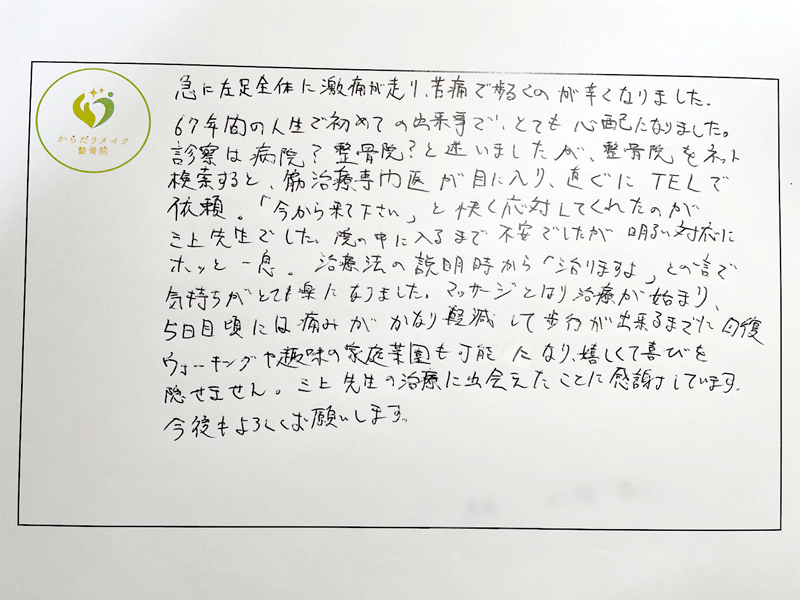 からだリメイク
整骨院
急に左足全体に激痛が走り、苦痛で歩るくのが辛くなりました。
67年間の人生で初めての出来事で、とても心配になりました。
診察は病院？整骨院？と迷いましたが、整骨院をネット
検索すると、筋治療専門医が目に入り、直ぐにTELで
依頼。「今から来て下さい」と快く応対してくれたのが
三上先生でした。院の中に入るまで不安でしたが明るい対応に
ホッと一息。治療法の説明時から「治りますよ」との言で
気持ちがとても楽になりました。マッサージとはり治療が始まり、
5日目頃には痛みがかなり軽減して歩行が出来るまでに回復
ウォーキングや趣味の家庭菜園も可能になり、嬉しくて喜びを
隠せません。三上先生の治療に出会えたことに感謝しています。
今後もよろしくお願いします。